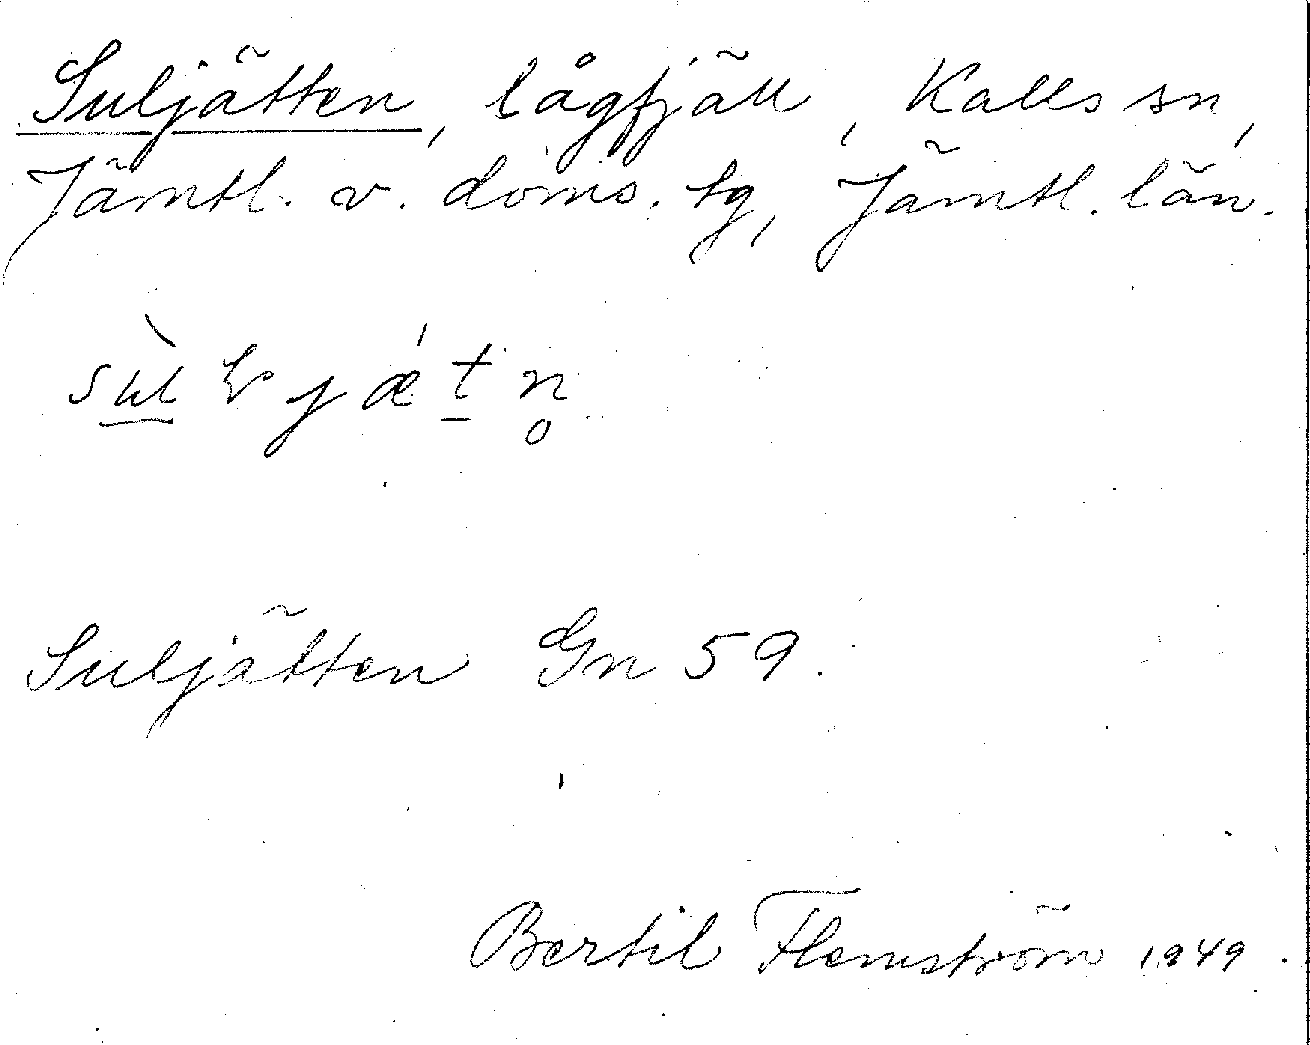 Suljätten, lågfjäll, Kalls sn,
Jämtl. v. doms. tg, Jämtl. län.
Suljätten Gn 59.
Bertil Flemström 1949.